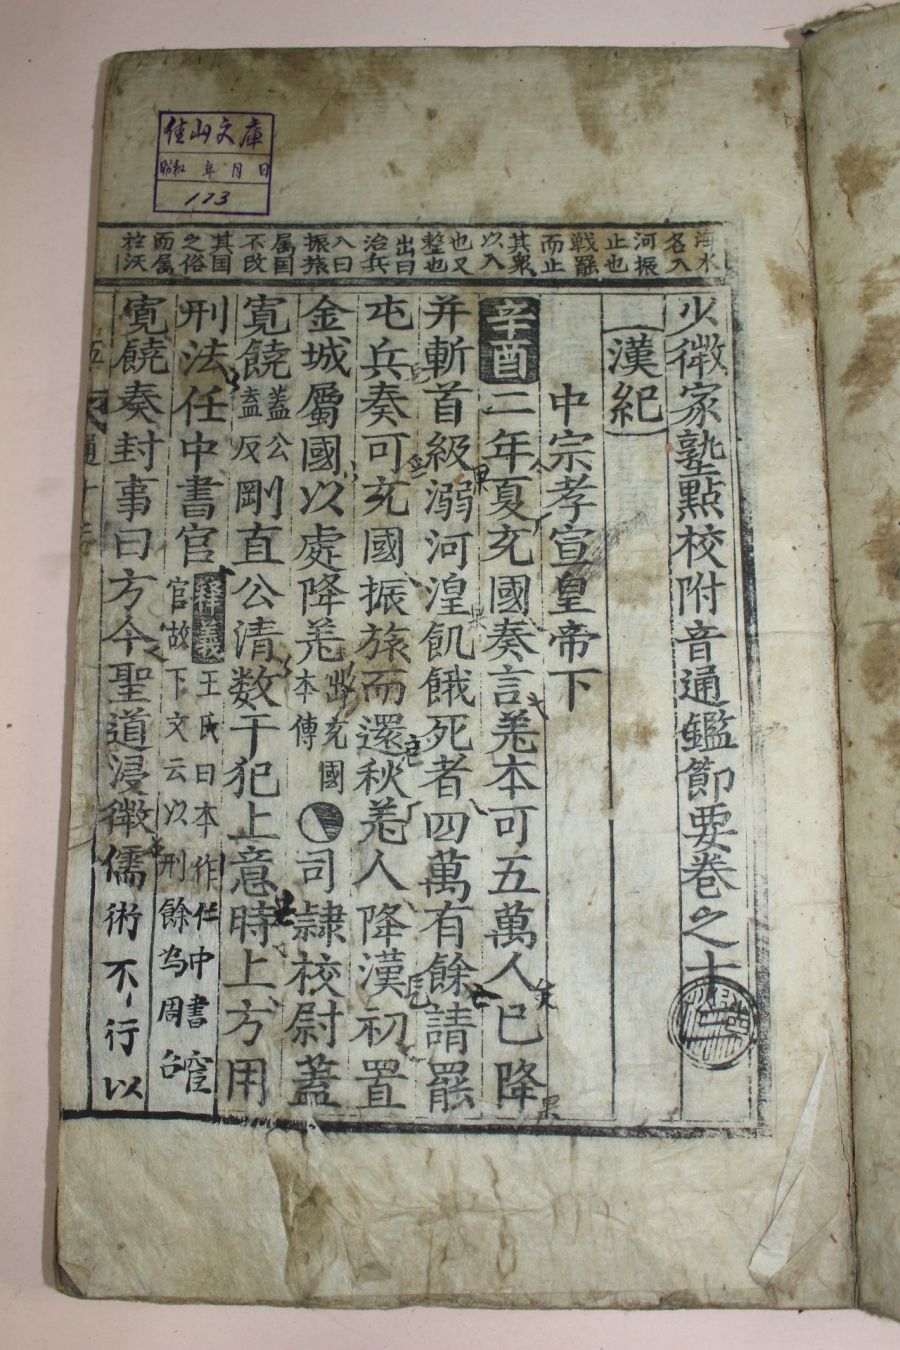 佳山文庫
昭和 年 月 日
173
海水
名入
河振
止也
戰罷
而止
其衆
以入
也又
整也
出曰
治兵
入曰
振旅
属国
不改
其国
之俗
而属
於汉
少微家塾點校附音通鑑節要卷之十
漢紀
中宗孝宣皇帝下
辛酉二年夏充國奏言羌本可五萬人已降
并斬首級溺河湟飢餓死者四萬有餘請罷
屯兵奏可充國振旅而還秋羌人降漢初置
金城屬國以處降羌出充國本傳司隷校尉蓋
寛饒蓋公盍反剛直公清数干犯上意時上方用
刑法任中書官王氏曰本作任中書宦官故下文云以刑餘為周召
寛饒奏封事曰方今聖道浸微儒術不行以